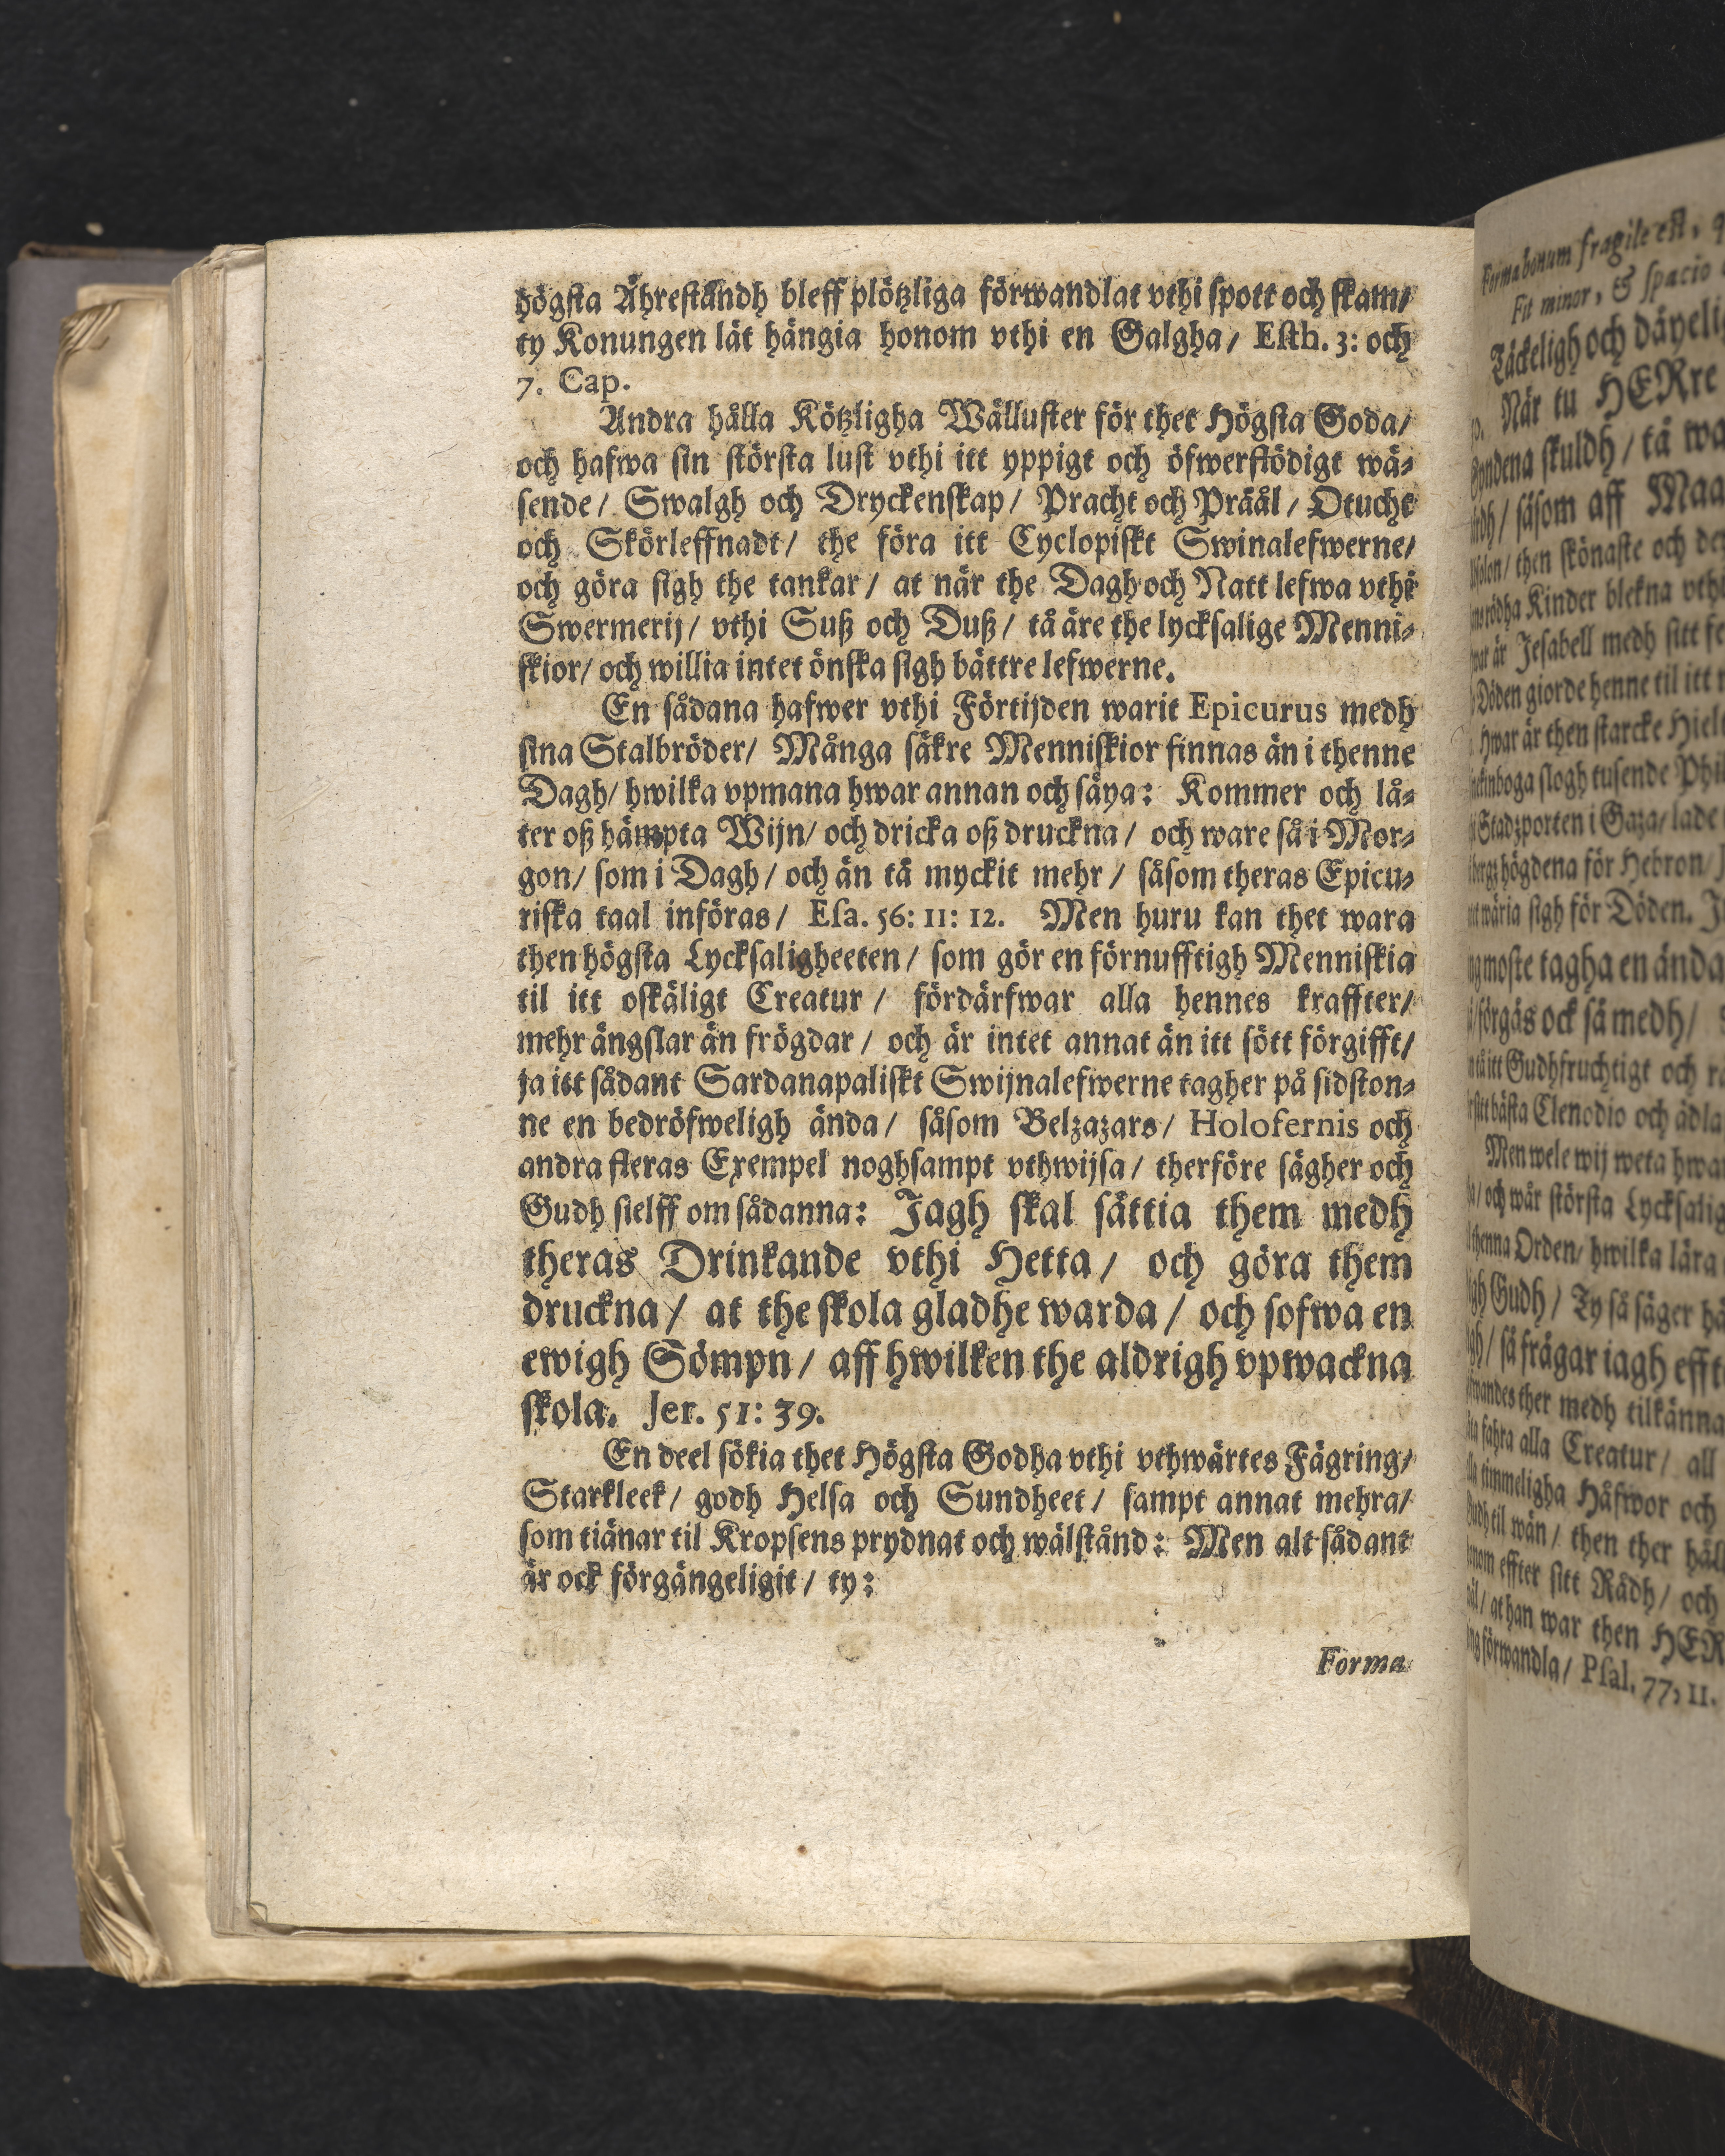 högsta Ähreståndh bleff plötzliga förwandlat vthi spott och skam/
ty Konungen lät hängia honom vthi en Galgha/ Esth. 3: och
7. Cap.
Andra hålla Kötzligha Wälluster för thet Högsta Goda/
och hafwa sin största lust vthi itt yppigt och öfwerflödigt wä-
sende/ Swalgh och Dryckenskap/ Pracht och Präål/ Otucht
och Skörleffnadt/ the föra itt Cyclopiskt Swinalefwerne/
och göra sigh the tankar/ at när the Dagh och Natt lefwa vthi
Swermerij/ vthi Suß och Duß/ tå äre the lycksalige Menni-
skior/ och willia intet önska sigh bättre lefwerne.
En sådana hafwer vthi Förtijden warit Epicurus medh
sina Stalbröder/ Många säkre Menniskior finnas än i thenne
Dagh/ hwilka vpmana hwar annan och säya: Kommer och lå-
ter oß hämpta Wijn/ och dricka oß druckna/ och ware så i Mor-
gon/ som i Dagh/ och än tå myckit mehr/ såsom theras Epicu-
riska taal införas/ Esa. 56: 11: 12. Men huru kan thet wara
then högsta Lycksaligheeten/ som gör en förnufftigh Menniskia
til itt oskäligt Creatur/ fördärfwar alla hennes kraffter/
mehr ängslar än frögdar/ och är intet annat än itt sött förgifft/
ja itt sådant Sardanapaliskt Swijnalefwerne tagher på sidston-
ne en bedröfweligh ända/ såsom Belzazars/ Holofernis och
andra fleras Exempel noghsampt vthwijsa/ therföre sägher och
Gudh sielff om sådanna: Jagh skal sättia them medh
theras Drinkande vthi Hetta/ och göra them
druckna/ at the skola gladhe warda/ och sofwa en
ewigh Sömpn/ aff hwilken the aldrigh vpwackna
skola. Jer. 51: 39.
En deel sökia thet Högsta Godha vthi vthwärtes Fägring/
Starkleek/ godh Helsa och Sundheet/ sampt annat mehra/
som tiänar til Kropsens prydnat och wälstånd: Men alt sådant
är ock förgängeligit/ ty:
Forma
Forma bonum fragile est,
Fit minor, & spacio
Täckeligh och däyeli
När tu HERre
skuldh/ tå wa
såsom aff Maa
then skönaste och
Kinder blekna
är Jesabell medh sitt
Döden giorde henne til itt
Hwar är then starcke
slogh tusende
Stadzporten i Gaza/ lade
högdena för Hebron/
wäria sigh för Döden.
moste tagha en ända
förgås ock så medh/
itt Gudhfruchtigt och
bästa Clenodio och ädla
Men wele wij weta
och wår största
thenna Orden/ hwilka lära
Gudh/ Ty så säger
så frågar iagh
ther medh tilkänna
fahra alla Creatur/ all
timmeligha Håfwor och
til wän/ then ther
effter sitt Rådh/ och
at han war then
förwandla/ Psal. 77, 11.